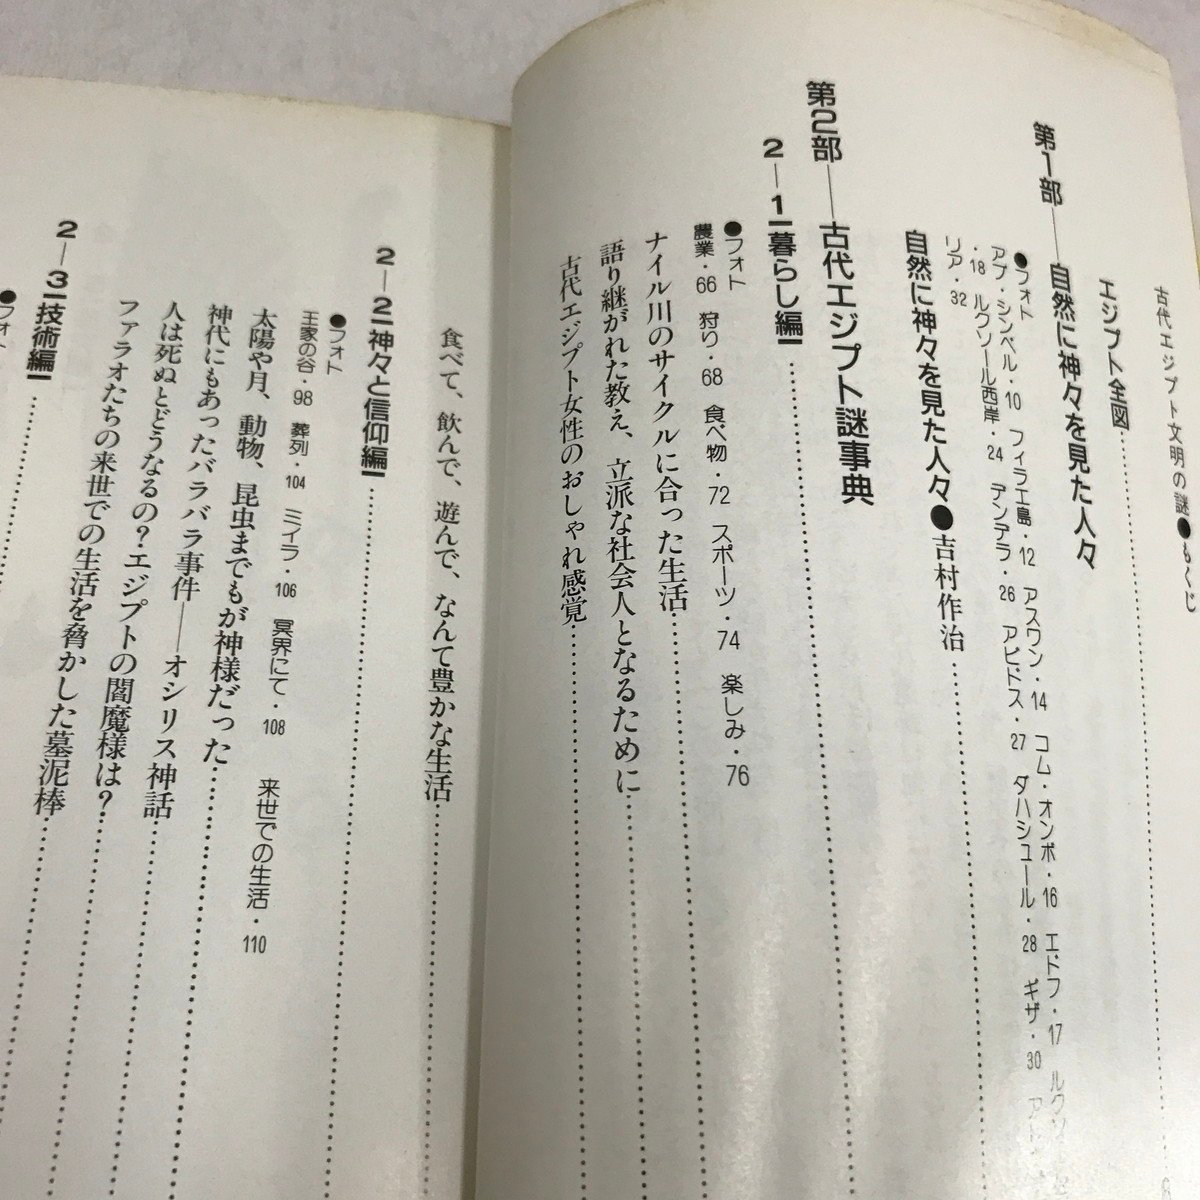 古代エジプト文明の謎●もくじ
エジプト全図
第1部──自然に神々を見た人々
●フォト
アブ・シンベル・10 フィラエ島・12 アスワン・14 コム・オンボ・16 エドフ・17 ルクソー
・18 ルクソール西岸・24 デンデラ・26 アビドス・27 ダハシュール・28 ギザ・30 アレ
リア・32
自然に神々を見た人々●吉村作治
第2部──古代エジプト謎事典
2─1 暮らし編
●フォト
農業・66 狩り・68 食べ物・72 スポーツ・74 楽しみ・76
ナイル川のサイクルに合った生活
語り継がれた教え、立派な社会人となるために
古代エジプト女性のおしゃれ感覚
食べて、飲んで、遊んで、なんて豊かな生活
2─2 神々と信仰編
●フォト
王家の谷・98 葬列・104 ミイラ・106 冥界にて・108 来世での生活・110
太陽や月、動物、昆虫までもが神様だった
神代にもあったバラバラ事件──オシリス神話
人は死ぬとどうなるの？エジプトの閻魔様は？
ファラオたちの来世での生活を脅かした墓泥棒
2─3 技術編
●フォト